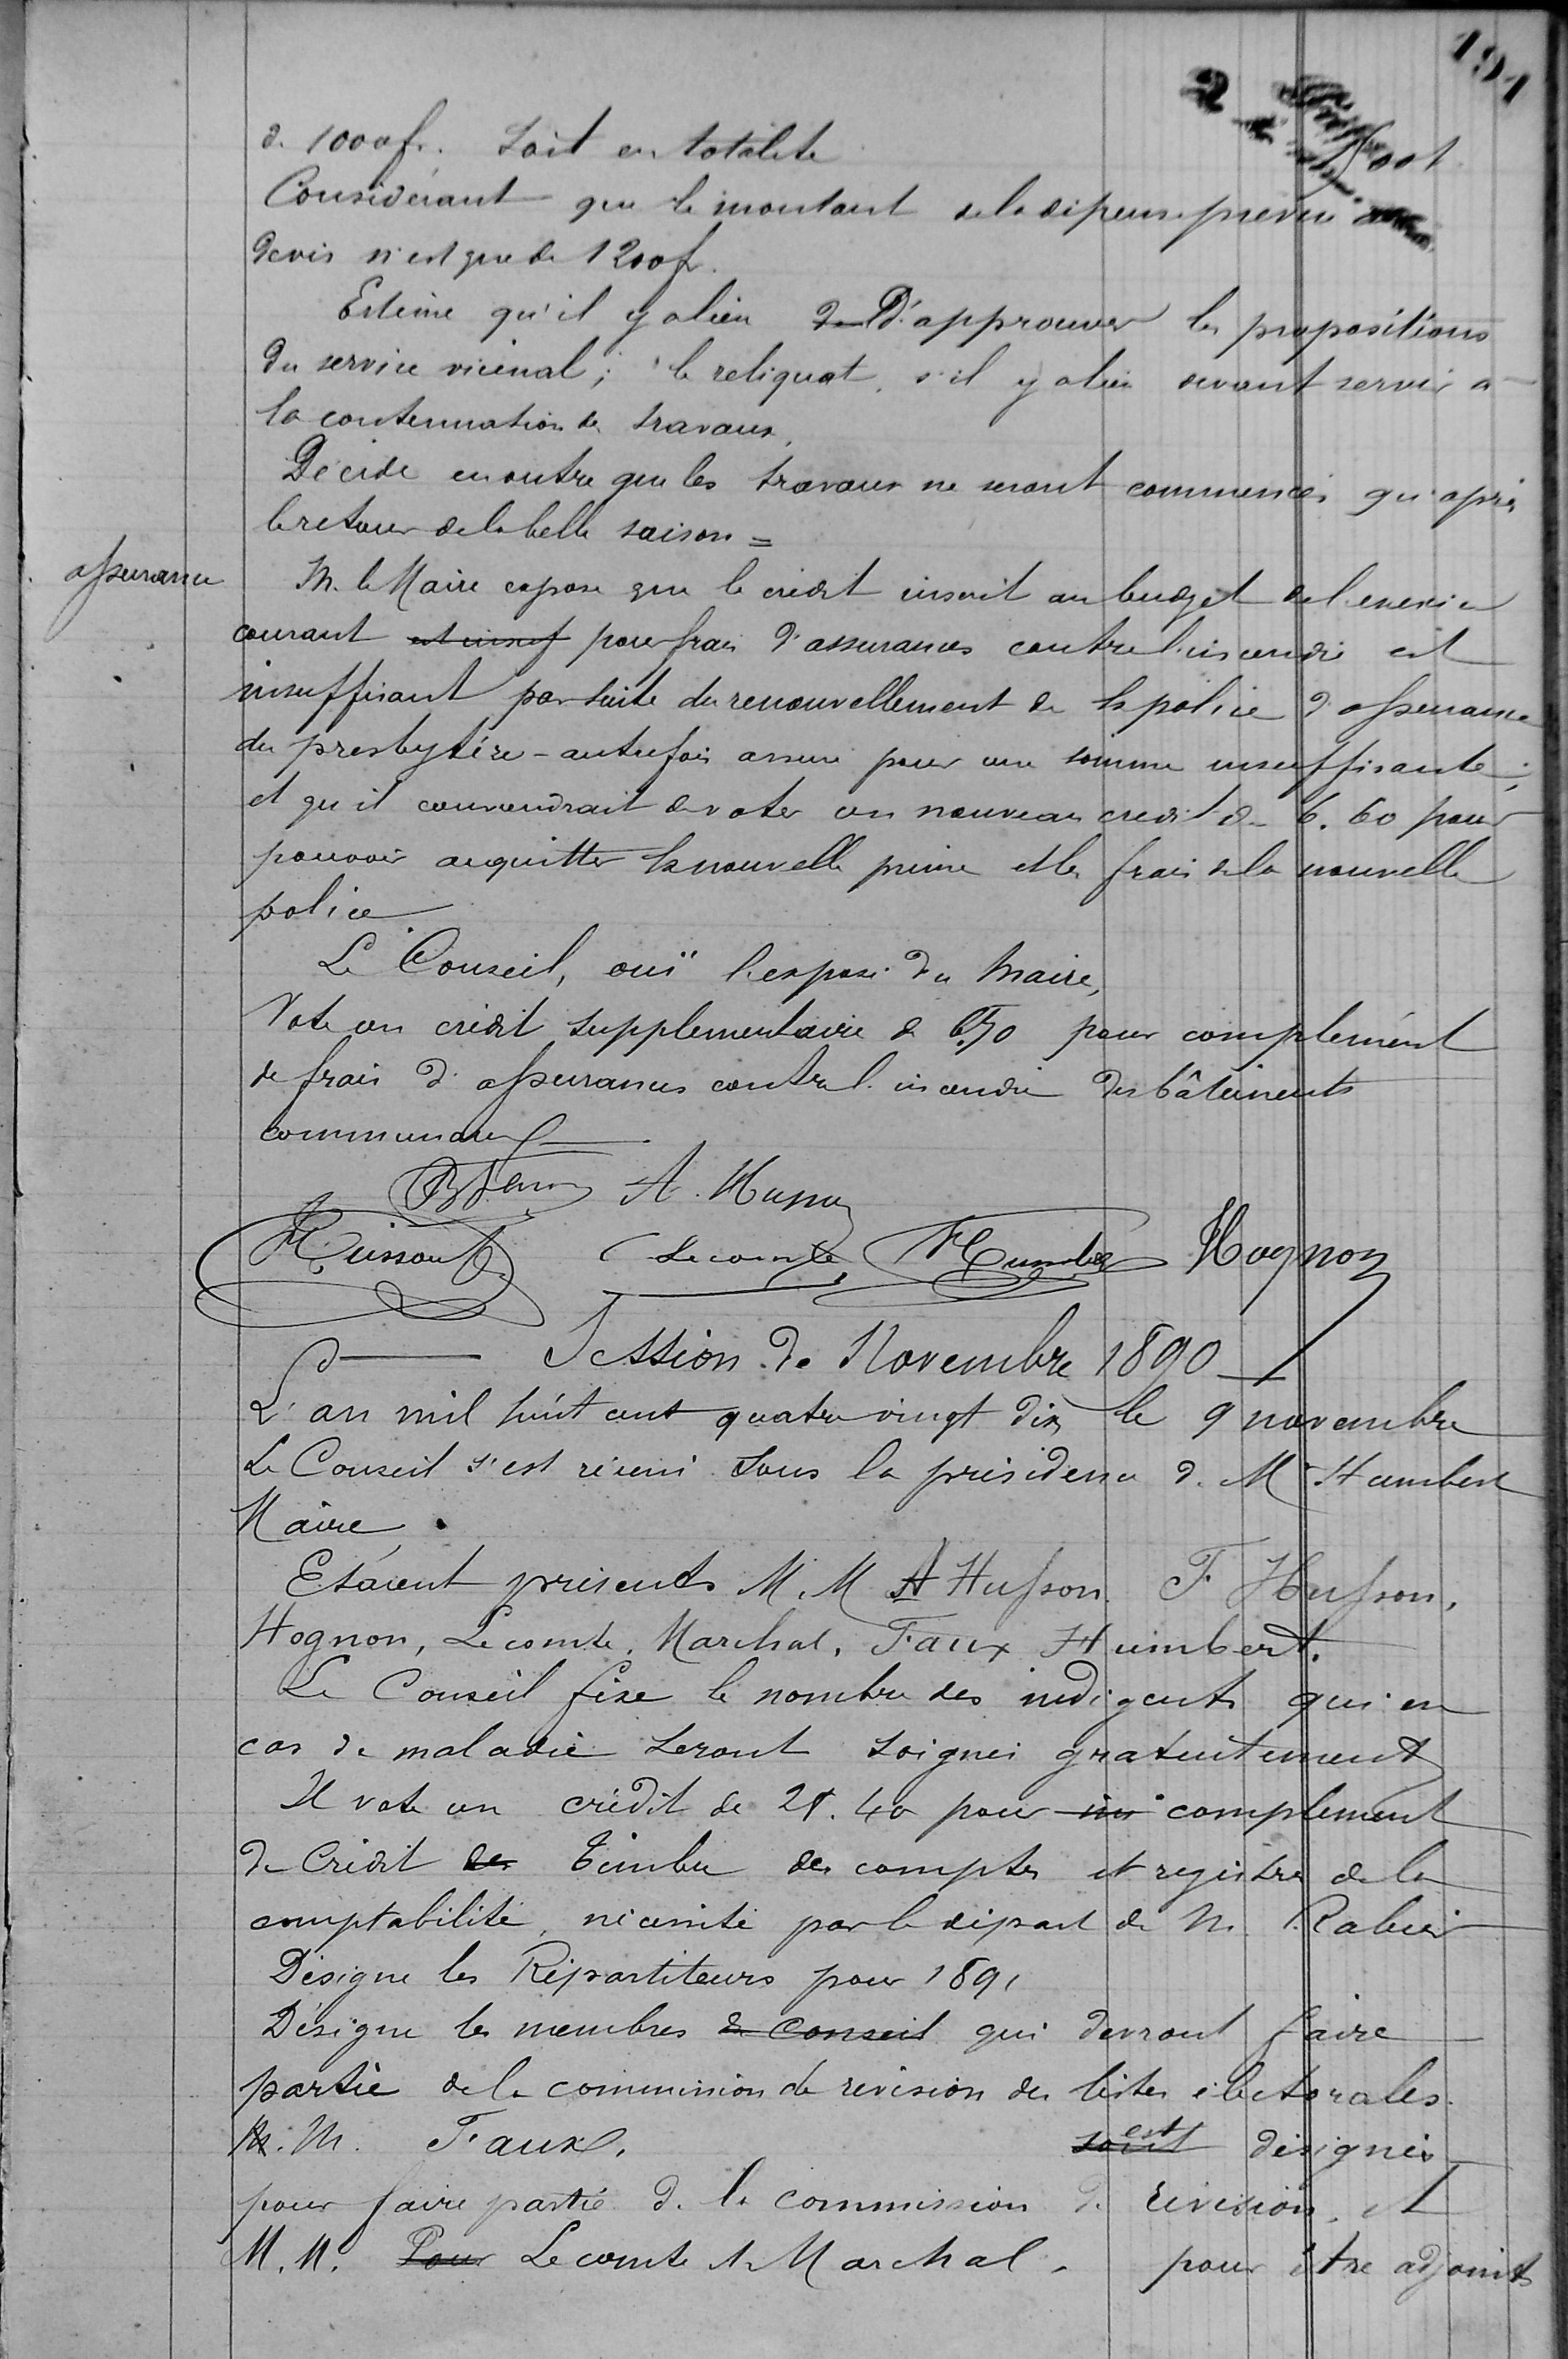 191
de 1000f. Soit en totalité
Considérant que le montant de la dépense prévue
devis n'est que de 1200f.
Estime qu'il y a lieu de D'approuver les propositions
du service vicinal ; le reliquat, s'il y a lieu devant servir à
la continuation des travaux.
Décide en outre que les travaux ne seront commencés qu'après
le retour de la belle saison =
assurance
M. le Maire expose que le crédit inscrit au budget de l'exercice
courant est insuf pour frais d'assurances contre l'incendie est
insuffisant par suite du renouvellement de la police d'assurance
du presbytère - autrefois assuré pour une somme insuffisante ;
et qu'il conviendrait de voter un nouveau crédit de 6.60 pour
pouvoir acquitter la nouvelle prime et les frais de la nouvelle
police
Le Conseil, ouï l'exposé du Maire,
Vote un crédit supplémentaire de pour complément
de frais d'assurances contre l'incendie des bâtiments
communaux
A. Husson
Lecomte Humbert Hognon
Session de Novembre 1890
L'an mil huit cent quatre vingt dix le 9 novembre
Le Conseil s'est réuni sous la présidence de Mr Humbert
Maire
Etaient présents M.M A Husson. F Husson,
Hognon, Lecomte, Marchal, Faux Humbert.
Le Conseil fixe le nombre des indigents qui en
cas de maladie seront soignés gratuitement
Il vote un crédit de 2f.40 pour complément
de Crédit des Timbre des comptes et registres de la
comptabilité, nécessité par le départ de M. Rabier
Désigne les Répartiteurs pour 1891
Désigne les membres de Conseil qui devront faire
partie de la commission de révision des listes électorales.
M. M. Faux. sont est désignés
pour faire partie de la commission de révision, et
M.M. Pour Lecomte & Marchal. pour être adjoints